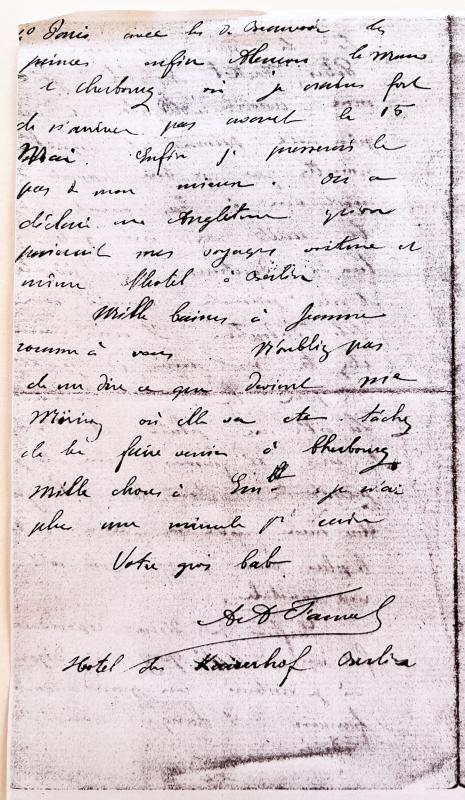 Paris avec les de Beauvoir des
princes enfin Alencon le Mans
et Cherbourg où je crains fort
de n'arriver pas avant le 15
Mai. Enfin je presserais le
pas de mon mieux. On a
déclaré en Angleterre qu'on
paierait mes voyages voiture et
même l'hotel à Berlin
Mille baisers à Jeanne
comme à vous N'oubliez pas
de me dire ce que devient Me
où elle va etre. tâchez
de la faire venir à Cherbourg
Mille choses à je n'ai
plus une minute pr
Votre gros bab
A
Hotel du Kaiserhof Berlin